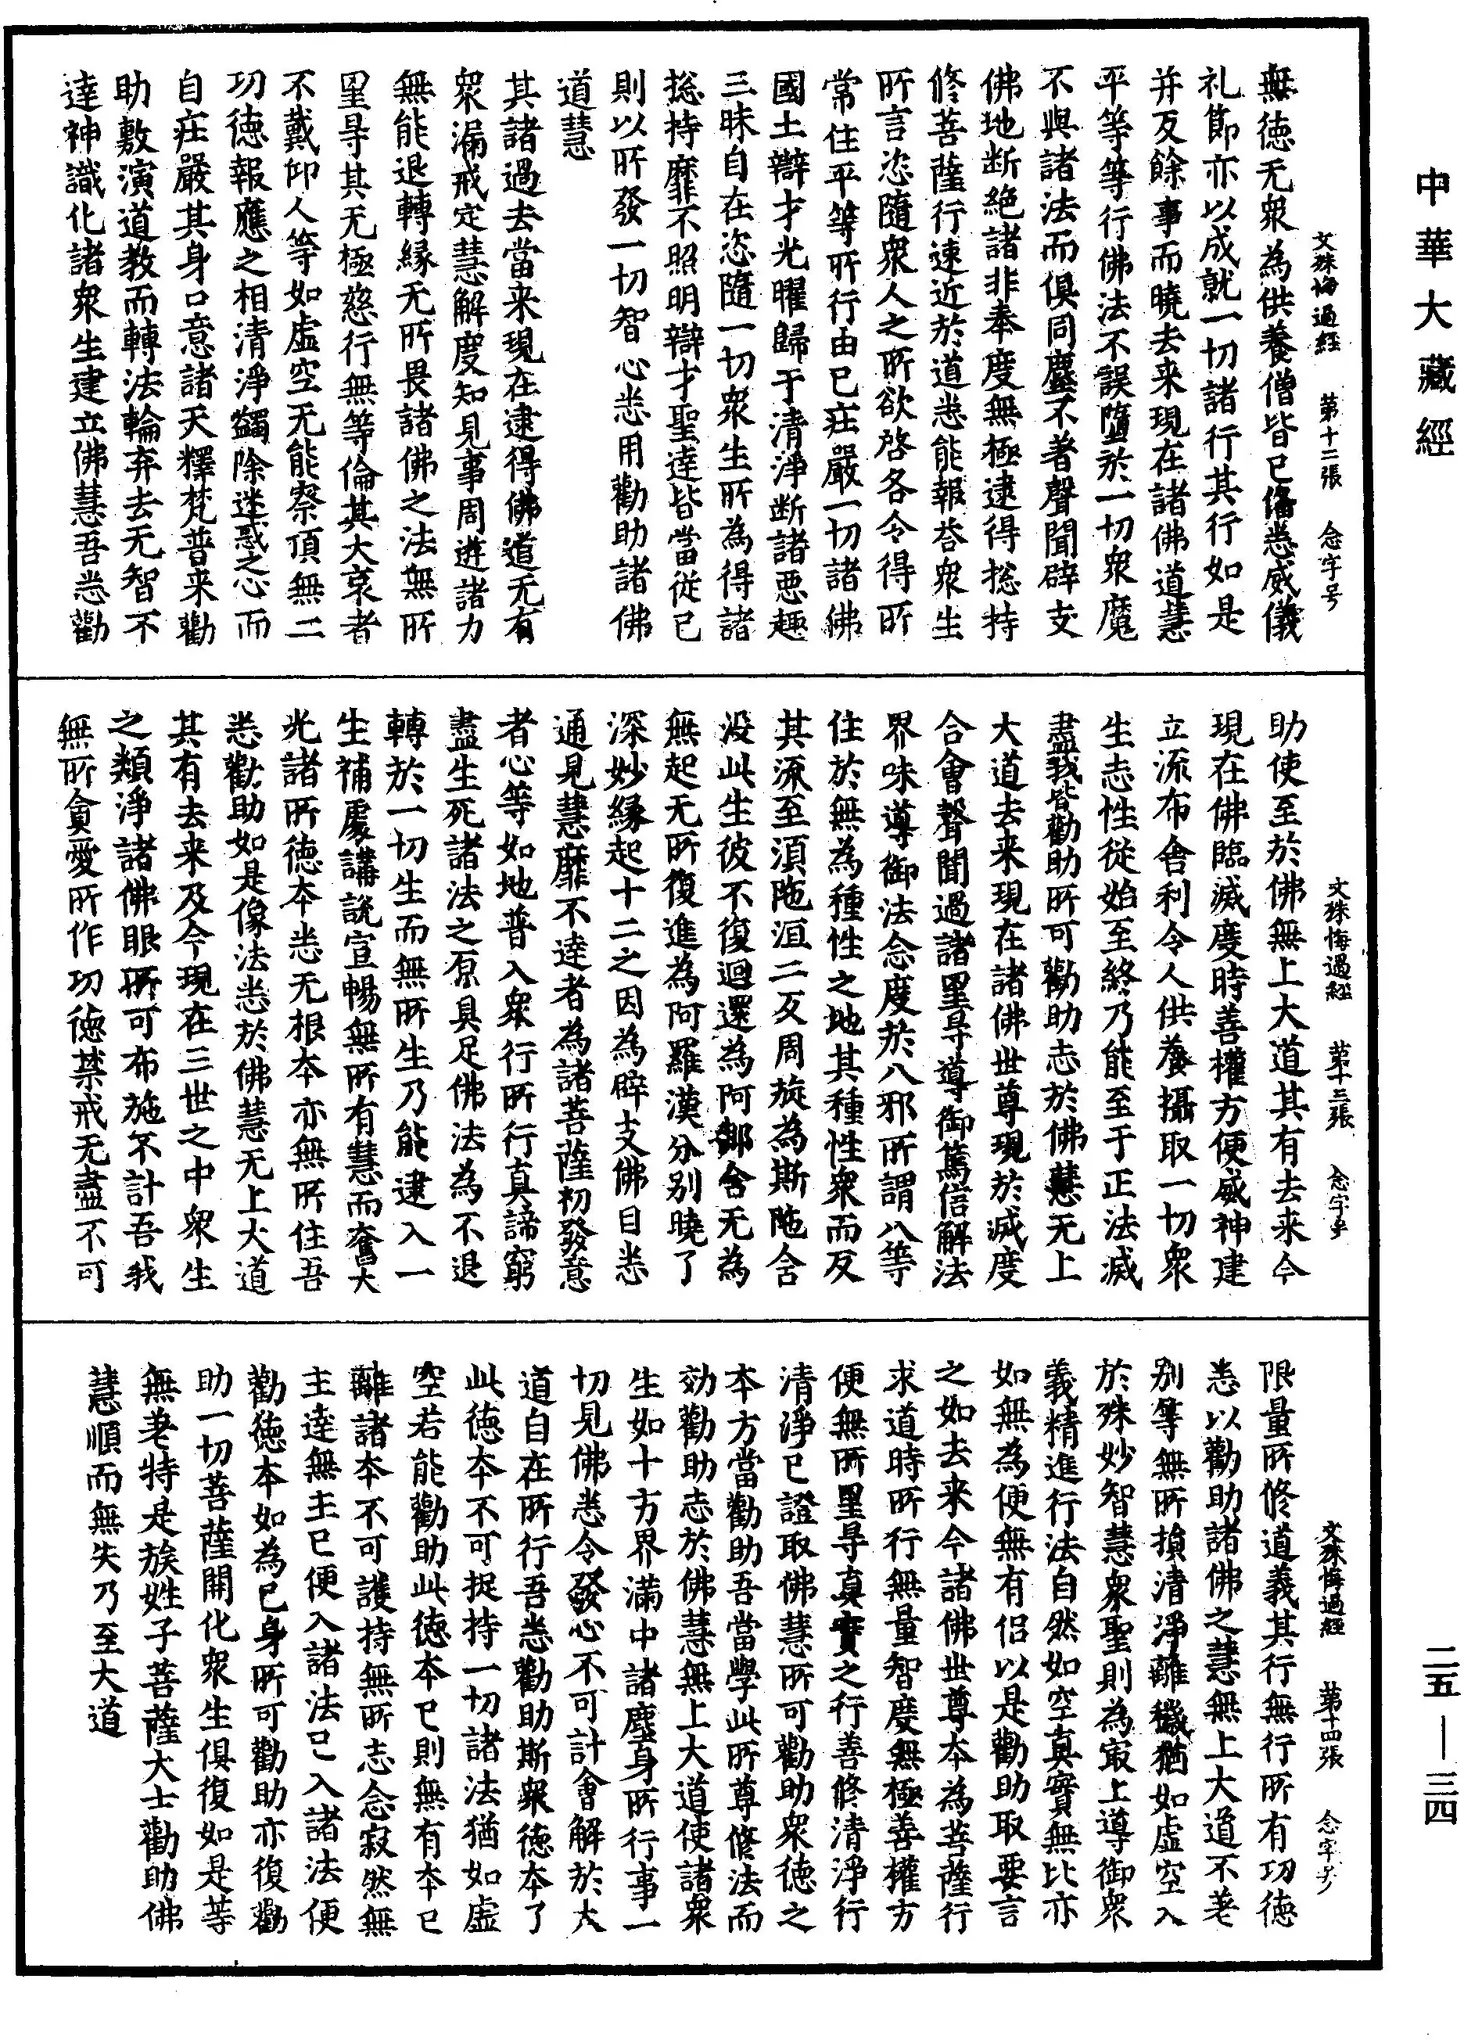 中華大藏經
文殊悔過經　第十二張　念字号
無徳无衆為供養僧皆已俻悉威儀
礼節亦以成就一切諸行其行如是
并及餘事而曉去来現在諸佛道慧
平等等行佛法不誤墮於一切衆魔
不與諸法而俱同塵不著聲聞辟支
佛地断絶諸非奉度無極逮得捴持
修菩薩行速近於道悉能報荅衆生
所言恣隨衆人之所欲啓各令得所
常住平等所行由已莊嚴一切諸佛
國土辯才光曜歸于清淨断諸惡趣
三昧自在恣隨一切衆生所為得諸
捴持靡不照明辯才聖達皆當従已
則以所發一切智心悉用勸助諸佛
道慧
其諸過去當来現在逮得佛道无有
衆漏戒定慧解度知見事周遊諸力
無能退轉縁无所畏諸佛之法無所
罣导其无極慈行無等倫其大哀者
不戴仰人等如虚空无能察頂無二
功徳報應之相清淨蠲除迷惑之心而
自莊嚴其身口意諸天釋梵普来勸
助敷演道教而轉法輪弃去无智不
達神識化諸衆生建立佛慧吾悉勸
文殊悔過經　第十三張　念字号
助使至於佛無上大道其有去来今
現在佛臨滅度時善權方便威神建
立流布舎利令人供養攝取一切衆
生志性従始至終乃能至于正法滅
盡我皆勸助所可勸助志於佛慧无上
大道去来現在諸佛世尊現於滅度
合會聲聞過諸罣导導御篤信解法
界味導御法念度於八邪所謂八等
住於無為種性之地其種性衆而反
其源至須陁洹二反周旋為斯陁含
没此生彼不復迴還為阿𨚗含无為
無起无所復進為阿羅漢分别曉了
深妙縁起十二之因為辟支佛目悉
通見慧靡不達者為諸菩薩初發意
者心等如地普入衆行所行真諦窮
盡生死諸法之原具足佛法為不退
轉於一切生而無所生乃能逮入一
生補處講說宣暢無所有慧而奮大
光諸所徳本悉无根本亦無所住吾
悉勸助如是像法悉於佛慧无上大道
其有去来及今現在三世之中衆生
之類淨諸佛眼所可布施不計吾我
無所貪愛所作功徳禁戒无盡不可
文殊悔過經　第十四張　念字号
限量所修道義其行無行所有功徳
悉以勸助諸佛之慧無上大道不若
别等無所損清淨離穢猶如虚空入
於殊妙智慧衆聖則為㝡上導御衆
義精進行法自然如空真實無比亦
如無為便無有侣以是勸助取要言
之如去来今諸佛世尊本為菩薩行
求道時所行無量智度無極善權方
便無所罣导真實之行善修清淨行
清淨已證取佛慧所可勸助衆徳之
本方當勸助吾當學此所尊修法而
効勸助志於佛慧無上大道使諸衆
生如十方界滿中諸塵身所行事一
切見佛悉令發心不可計會解於大
道自在所行吾悉勸助斯衆徳本了
此徳本不可捉持一切諸法猶如虚
空若能勸助此徳本已則無有本已
離諸本不可護持無所志念寂然無
主達無主已便入諸法已入諸法便
勸徳本如為已身所可勸助亦復勸
助一切菩薩開化衆生俱復如是等
無若特是族姓子菩薩大士勸助佛
慧順而無失乃至大道
二五—三四